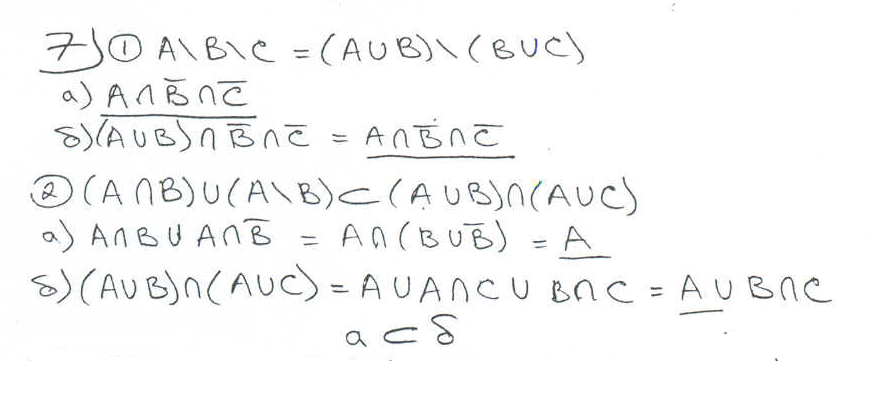 7) ① A\B\C = (A∪B)\(B∪C)
а) A∩B̅∩C̅
б) (A∪B)∩B̅∩C̅ = A∩B̅∩C̅
② (A∩B)∪(A\B)⊂(A∪B)∩(A∪C)
а) A∩B∪A∩B̅ = A∩(B∪B̅) = A
б) (A∪B)∩(A∪C) = A∪A∩C∪B∩C = A∪B∩C
а⊂б